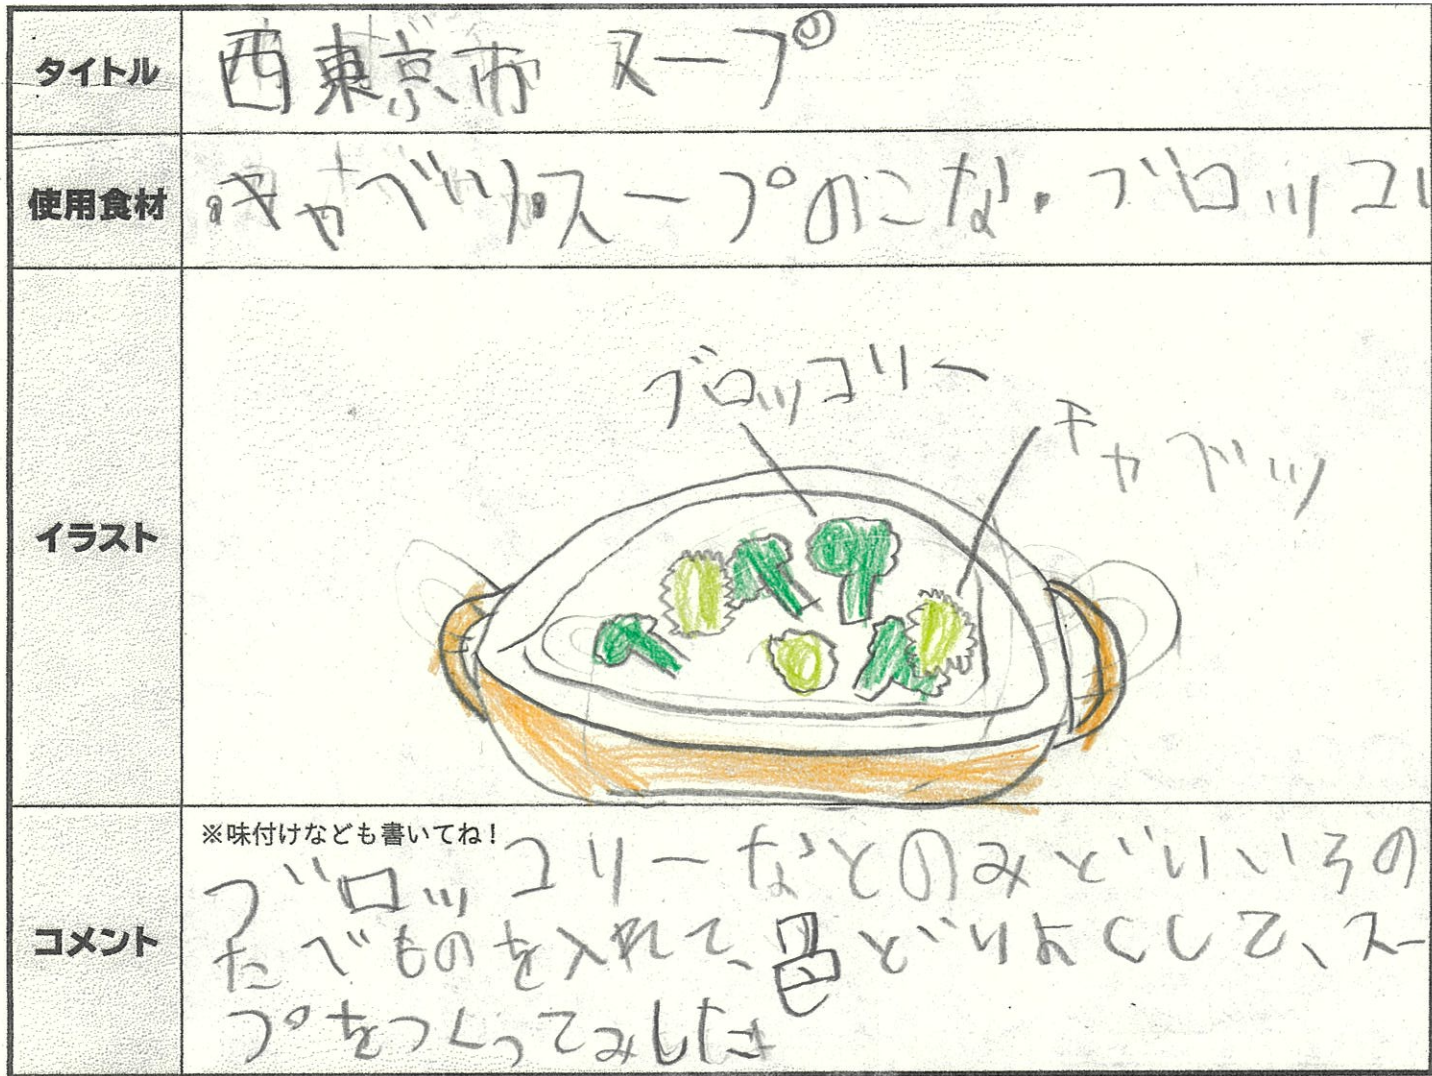 タイトル
西東京市 スープ
使用食材
・キャベツ・スープのこな・ブロッコリ
イラスト
ブロッコリー
キャベツ
コメント
※味付けなども書いてね!
ブロッコリーなとのみどりいろの
たべものを入れて、色どりよくして、スー
プをつくってみました